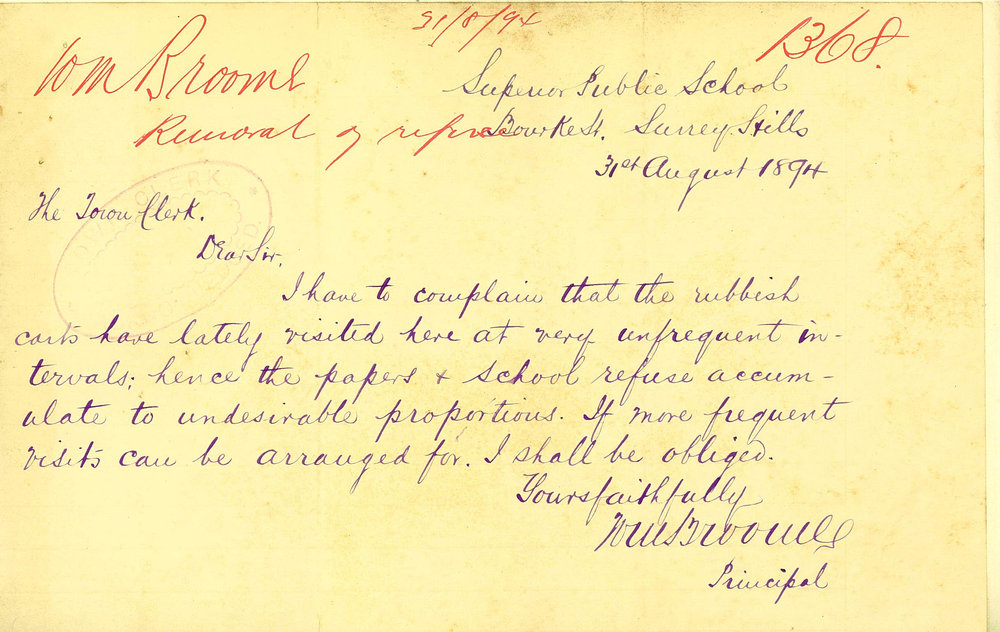 31/8/94
Wm Broome
1368.
Removal of refuse
Superior Public School
Bourke St. Surrey Hills
31st August 1894
CLERK
The Town Clerk.
Dear Sir,
I have to complain that the rubbish
carts have lately visited here at very unfrequent in-
tervals; hence the papers & school refuse accum-
ulate to undesirable proportions. If more frequent
visits can be arranged for. I shall be obliged.
Yours faithfully
Wm Broome
Principal